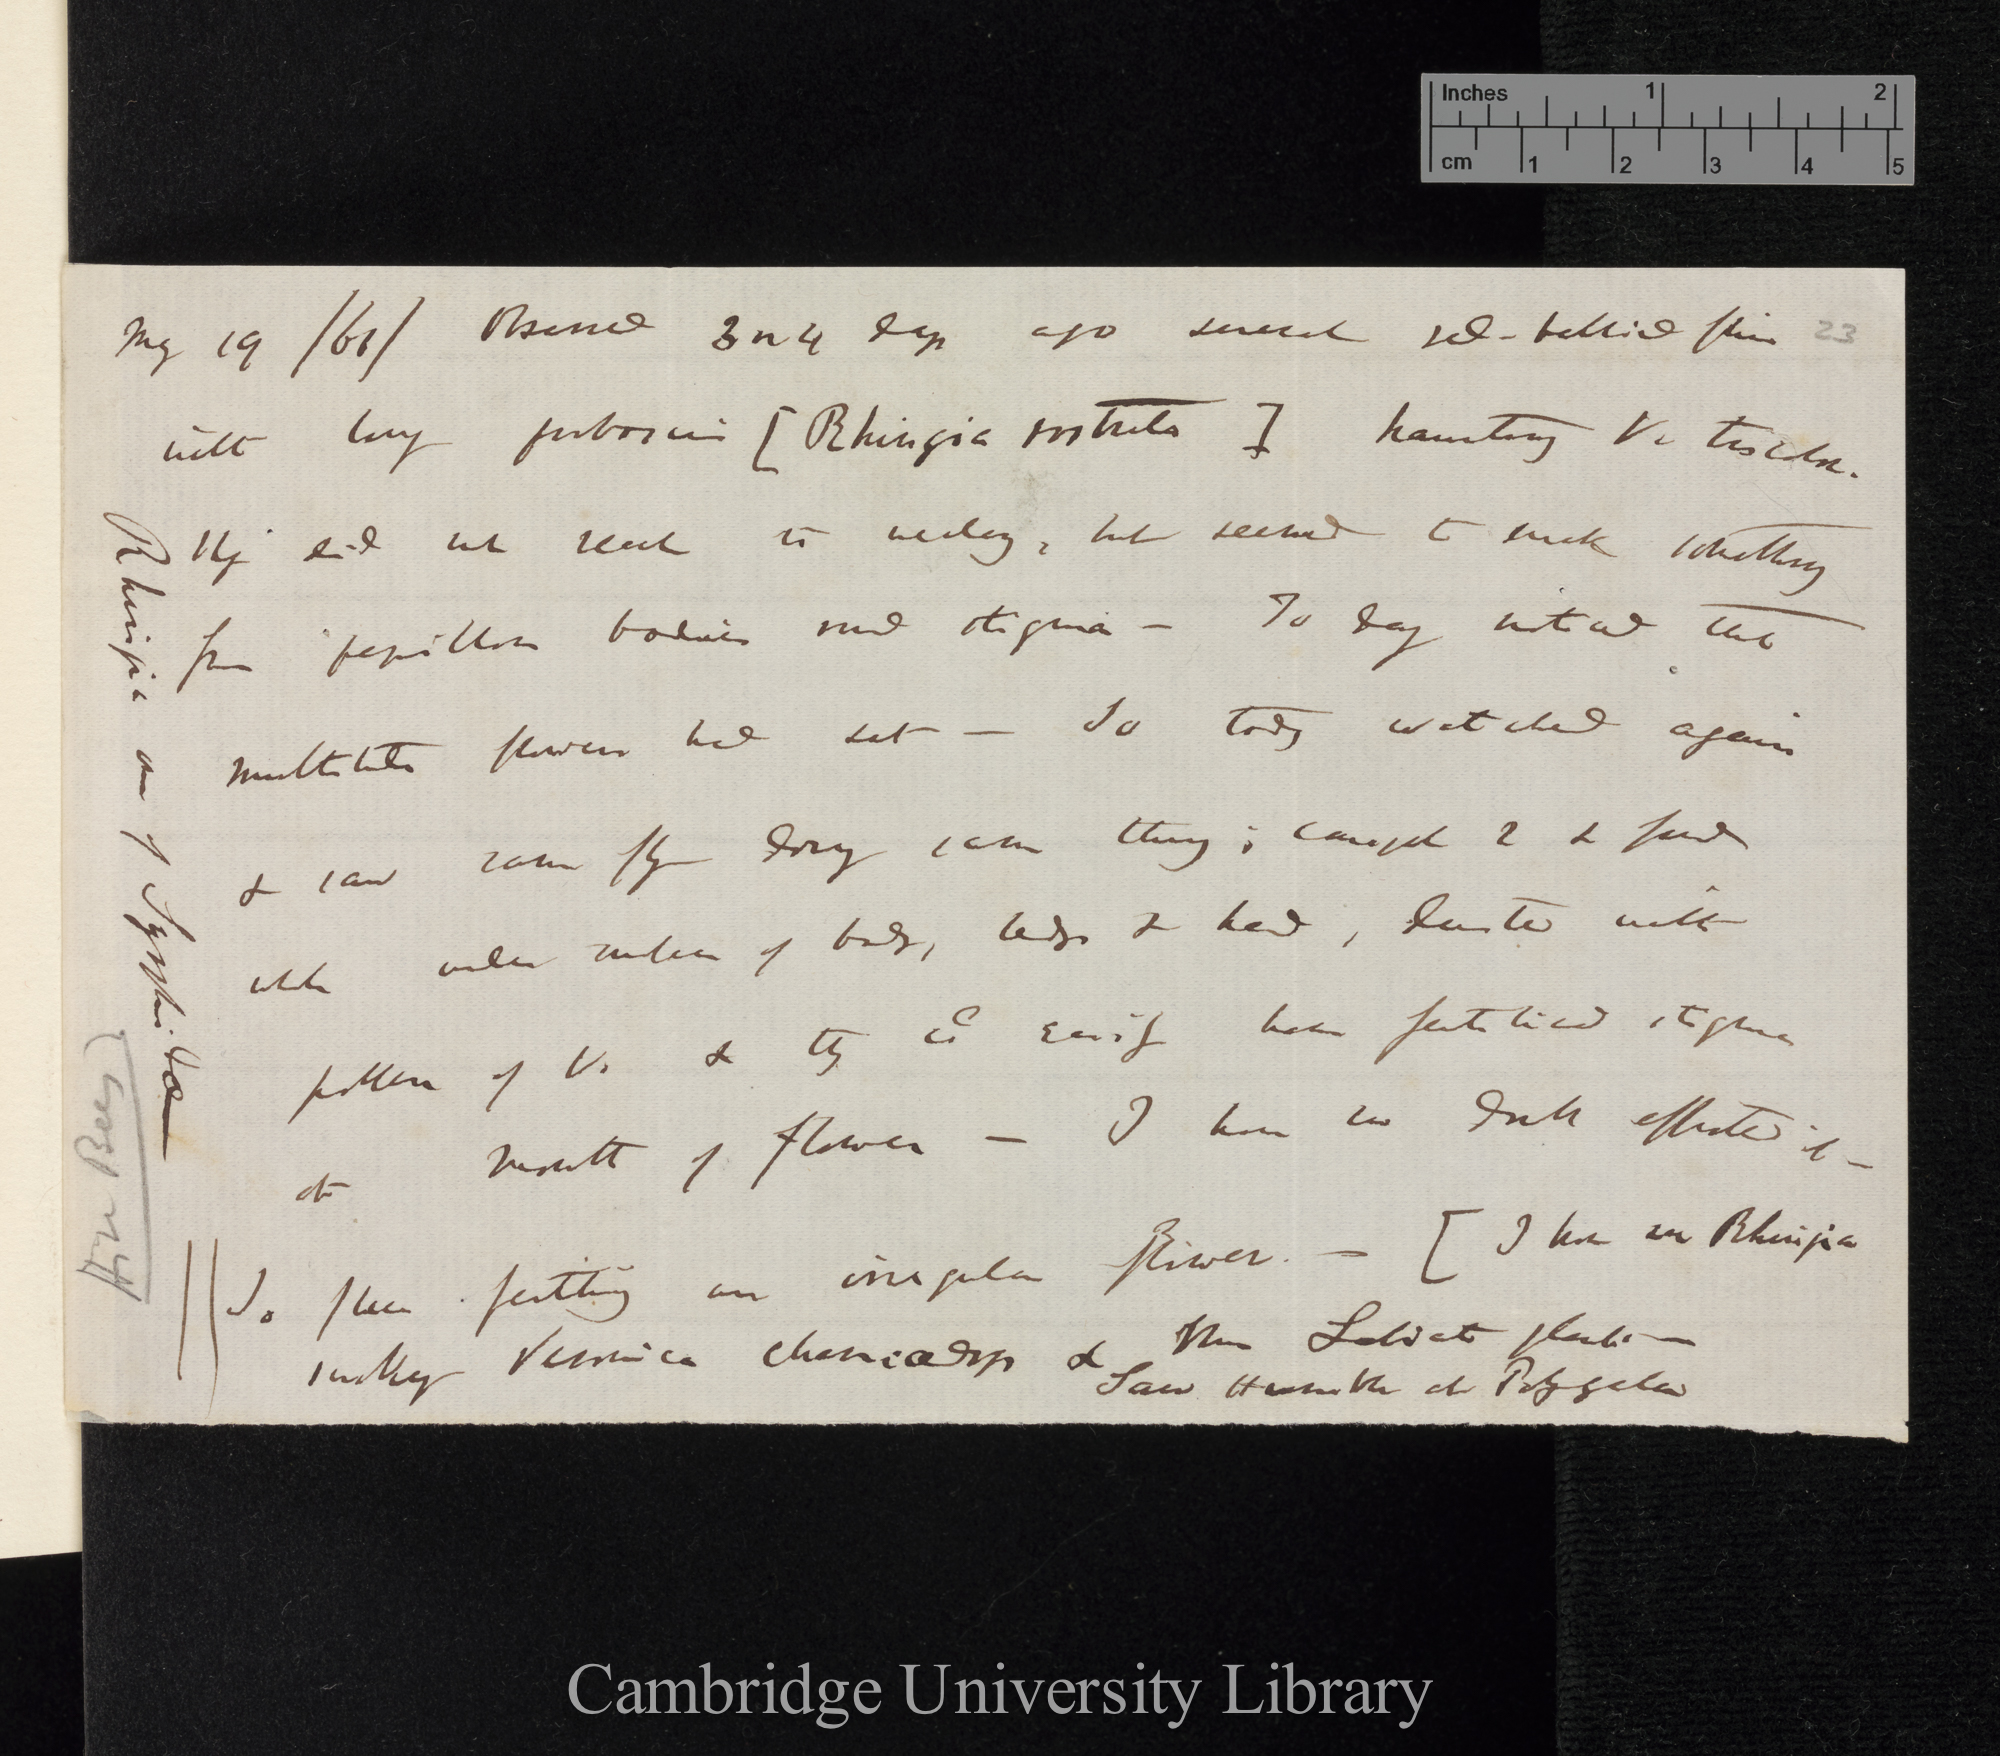 Inches 1 2
cm 1 2 3 4 5
23
May 19 /61/ Observed 3 or 4 days ago several red-bellied flies
with long proboscis [Rhingia rostrata] haunting V. tricolor.
They did not reach to nectary, but seemed to suck something
from papillose bodies round stigma — To day noticed that
multitude flowers had set — So today watched again
& saw same flies doing same thing; caught 2 & found
whole under surface of body, legs & head, dusted with
pollen of V. & they cd easily have fertilised stigma
at mouth of flower — I have no doubt effected it —
So flies fertilising an irregular flower. — [I have seen Rhingia
sucking Veronica chamaedrys & some Labiate plants —
Saw Humble at Polygala
Rhingia on
Hive Bees
Cambridge University Library